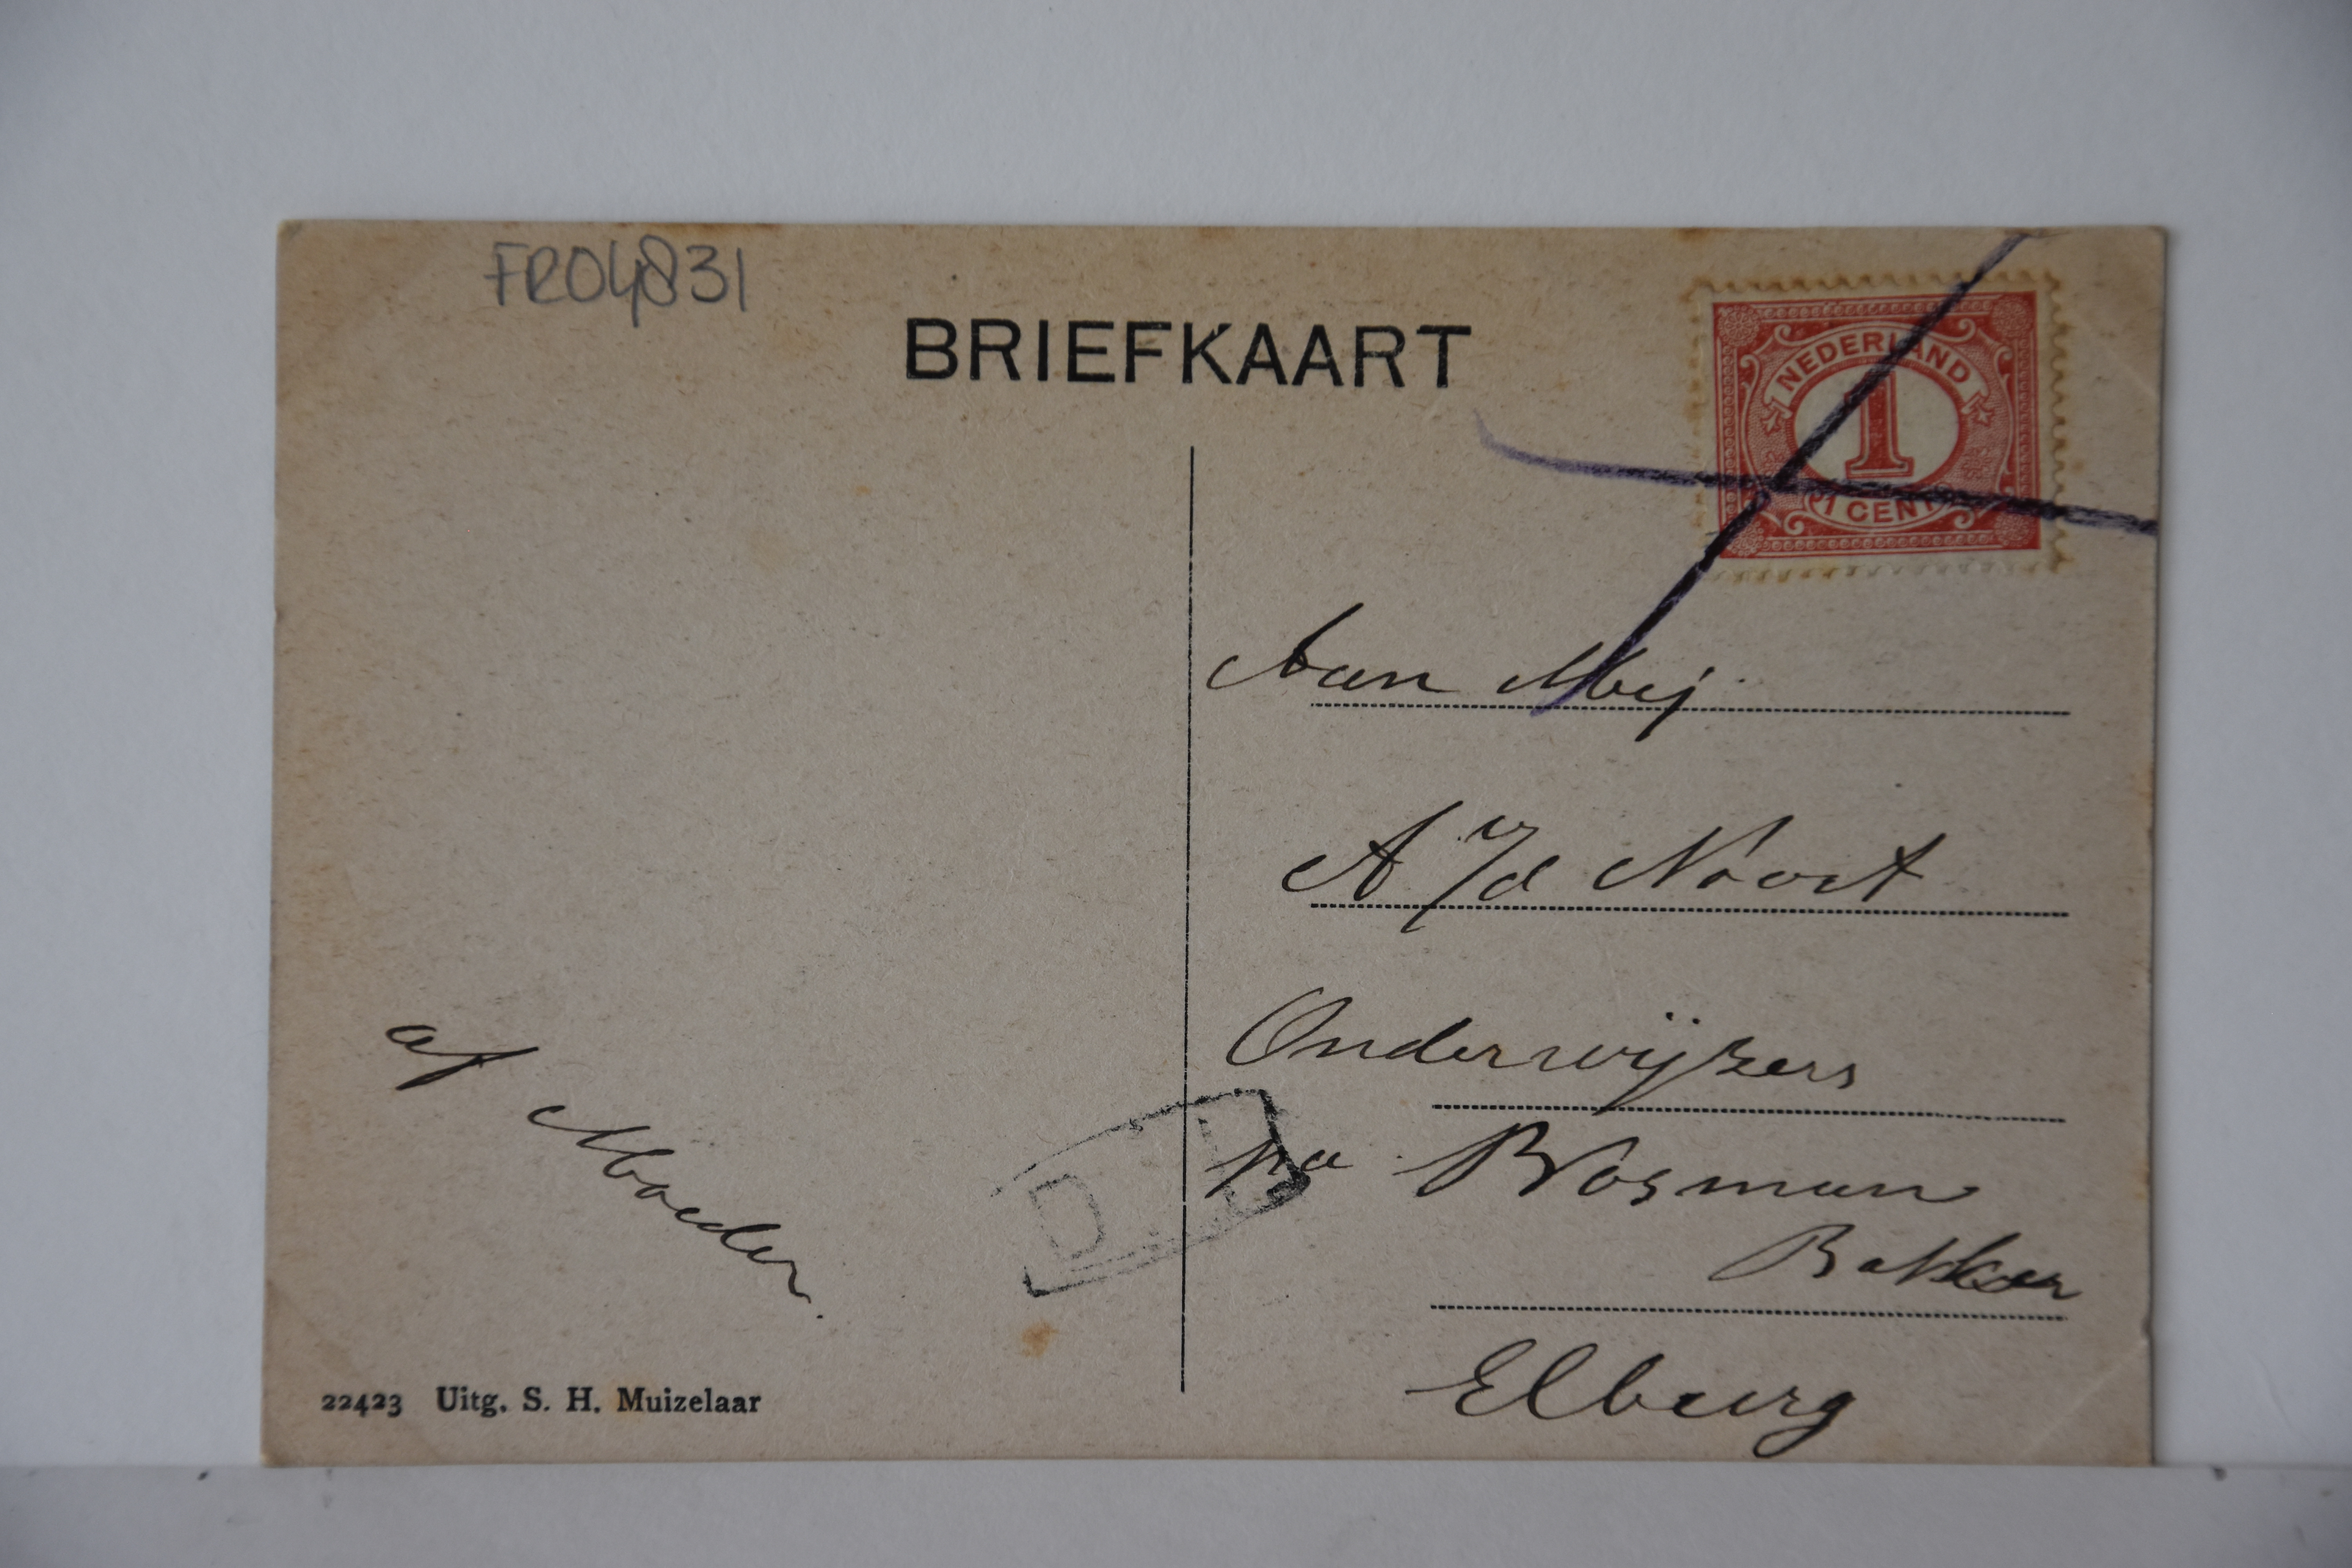 FRO4831
BRIEFKAART
NEDERLAND
1
1 CENT
Aan Mej.
A v/d Noort
Onderwijzers
p/a Bosman
Bakker
Elburg
af Moeder.
D
22423 Uitg. S. H. Muizelaar